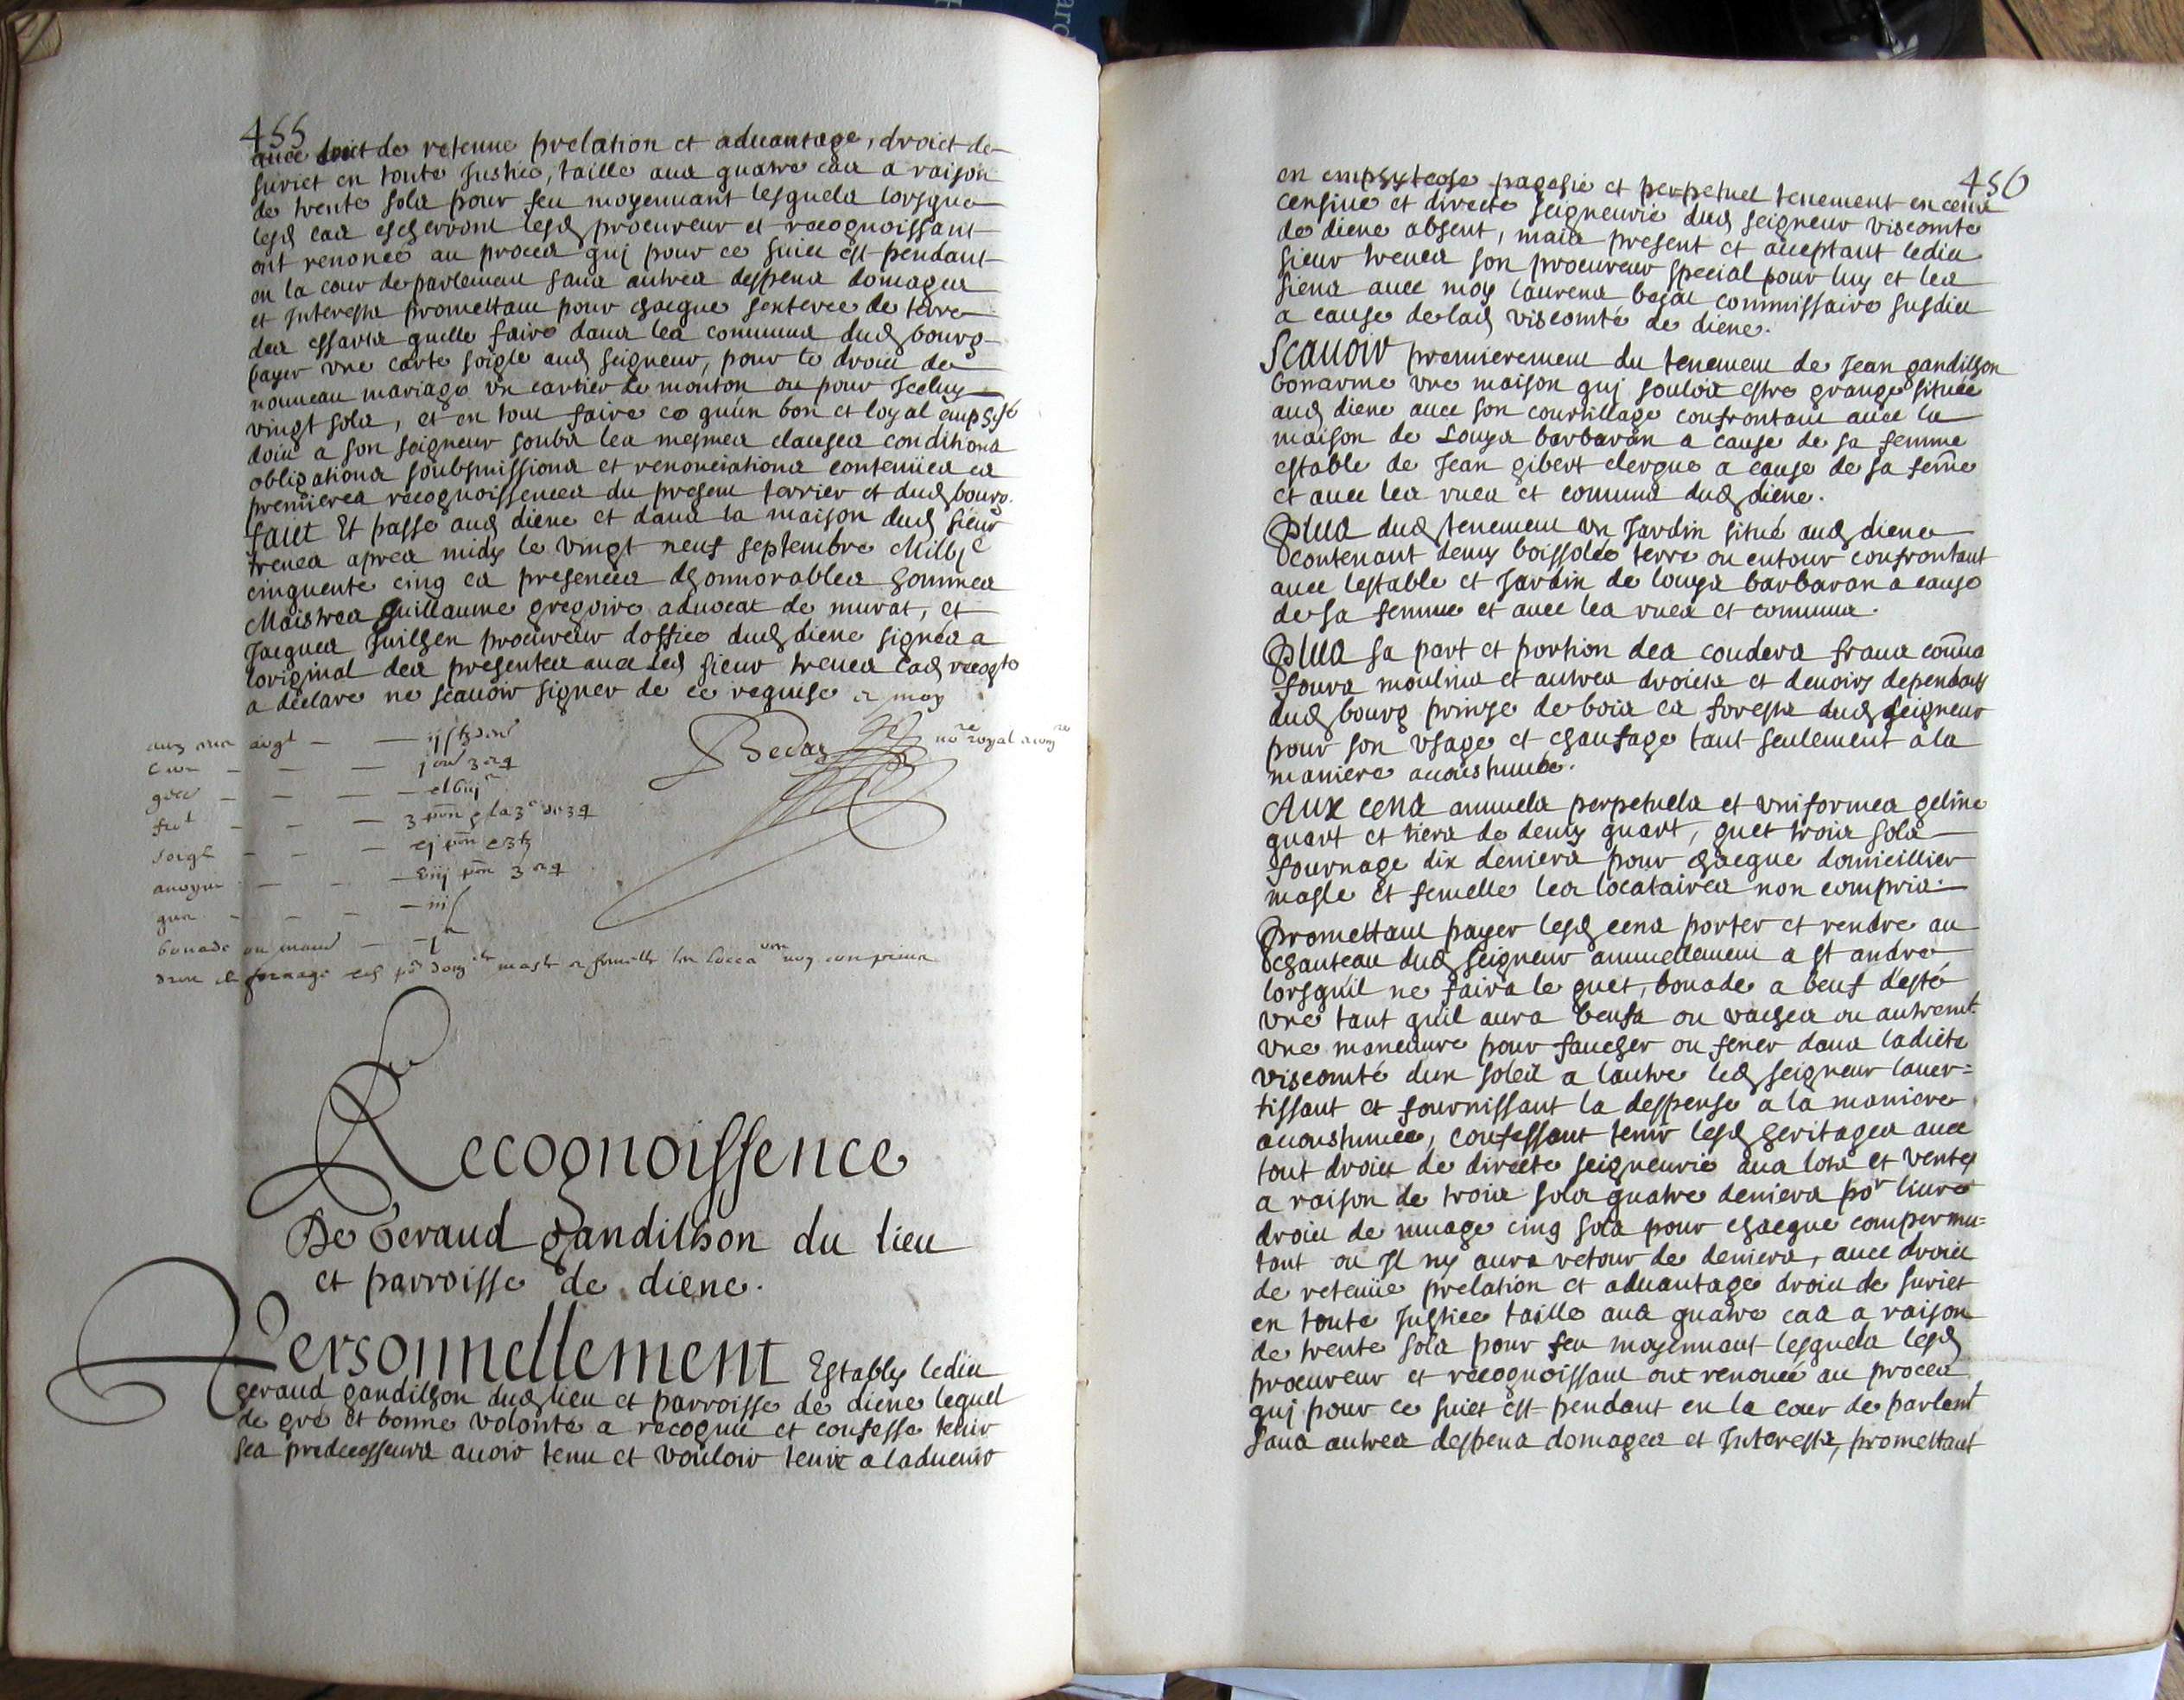 455
avec droit de retenue prelation et advantage, droict de
suriet en toute Justice, taille aux quatre cas a raison
de trente sols pour feu moyennant lesquels lorsque
lesd cas escherront lesd procureur et recognoissant
ont renoncé au proces quj pour ce suiet est pendant
en la cour de parlement sans autres despens domages
et Interests promettant pour chacque sexteree de terre
des essarts quelle faire dans les communs dud bourg
payer une carte soigle aud seigneur, pour le droict de
nouveau mariage un cartier de mouton ou pour Iceluy
vingt sols, et en tout faire ce qu'un bon et loyal emphyte
doit a son seigneur soubs les mesmes clauses conditions
obligations soubsmissions et renonciations contenües es
premieres recognoissences du present terrier et dud bourg.
faict Et passé aud diene et dans la maison dud sieur
treves apres midy le vingt neuf septembre Mil vjc
cinquente cinq es presences dhonnorables hommes
Maistres guillaume gregoire advocat de murat, et
Jacques Juilhen procureur doffice dud diene signés a
loriginal des presentes avec led sieur treves lad recogte
a declare ne scavoir signer de ce requise et moy
Bedas nore royal
argt
soigle
avoyne
iij s
bouade ou mane
droit de fornage masle et femelle les loccares non comprins
Recognoissence
De Geraud gandilhon du lieu
et parroisse de diene.
Personnellement Estably ledict
geraud gandilhon dud lieu et parroisse de diene lequel
de gré et bonne volonté a recognu et confessé tenir
ses predecesseurs avoir tenu et vouloir tenir a ladvenir
456
en emphyteose pagesie et perpetuel tenement en cens
censive et directe seigneurie dud seigneur viscomte
de diene absent, mais present et acceptant ledict
sieur treves son procureur special pour luy et les
siens avec moy laurens commissaire susdict
a cause de lad viscomté de diene.
Scavoir premierement du tenement de Jean gandilhon
bonarme une maison quj souloit estre grange située
aud diene avec son courtillage confrontant avec la
maison de Louys barbaran a cause de sa femme
estable de Jean gibert clergue a cause de sa feme
et avec les rues et comuns dud diene.
Plus dud tenement un Jardin situé aud diene
contenant demy boissolée terre ou entour confrontant
avec lestable et Jardin de louys barbaran a cause
de sa femme et avec les rues et comuns.
Plus sa part et portion des couders fraux comuns
fours moulins et autres droicts et devoirs dependants
dud bourg prinse de bois es forests dud seigneur
pour son usage et chaufage tant seulement a la
maniere acoustumée.
Aux cens annuels perpetuels et uniformes geline
quart et tiers de demy quart, guet trois sols
fournage dix deniers pour chacque domicillier
masle et femelle les locataires non compris.
Promettant payer lesd cens porter et rendre au
chanteau dud seigneur annuellement a st andre
lorsquil ne faira le guet, bouade a beuf d'esté
une tant quil aura beufs ou vaches ou autremt
une maneuvre pour faucher ou fener dans ladicte
viscomté dun soleil a lautre led seigneur laver=
tissant et fournissant la despense a la maniere
acoustumée, confessant tenir lesd heritages avec
tout droict de directe seigneurie aux lots et ventes
a raison de trois sols quatre deniers por livre
droict de muage cinq sols pour chacque compermu=
tant ou Il ny aura retour de deniers, avec droict
de retenüe prelation et advantage droict de suriet
en toute Justice taille aux quatre cas a raison
de trente sols pour feu moyennant lesquels lesd
procureur et recognoissant ont renoncé au proces
quj pour ce suiet est pendant en la cour de parlemt
sans autres despens domages et Interests, promettant